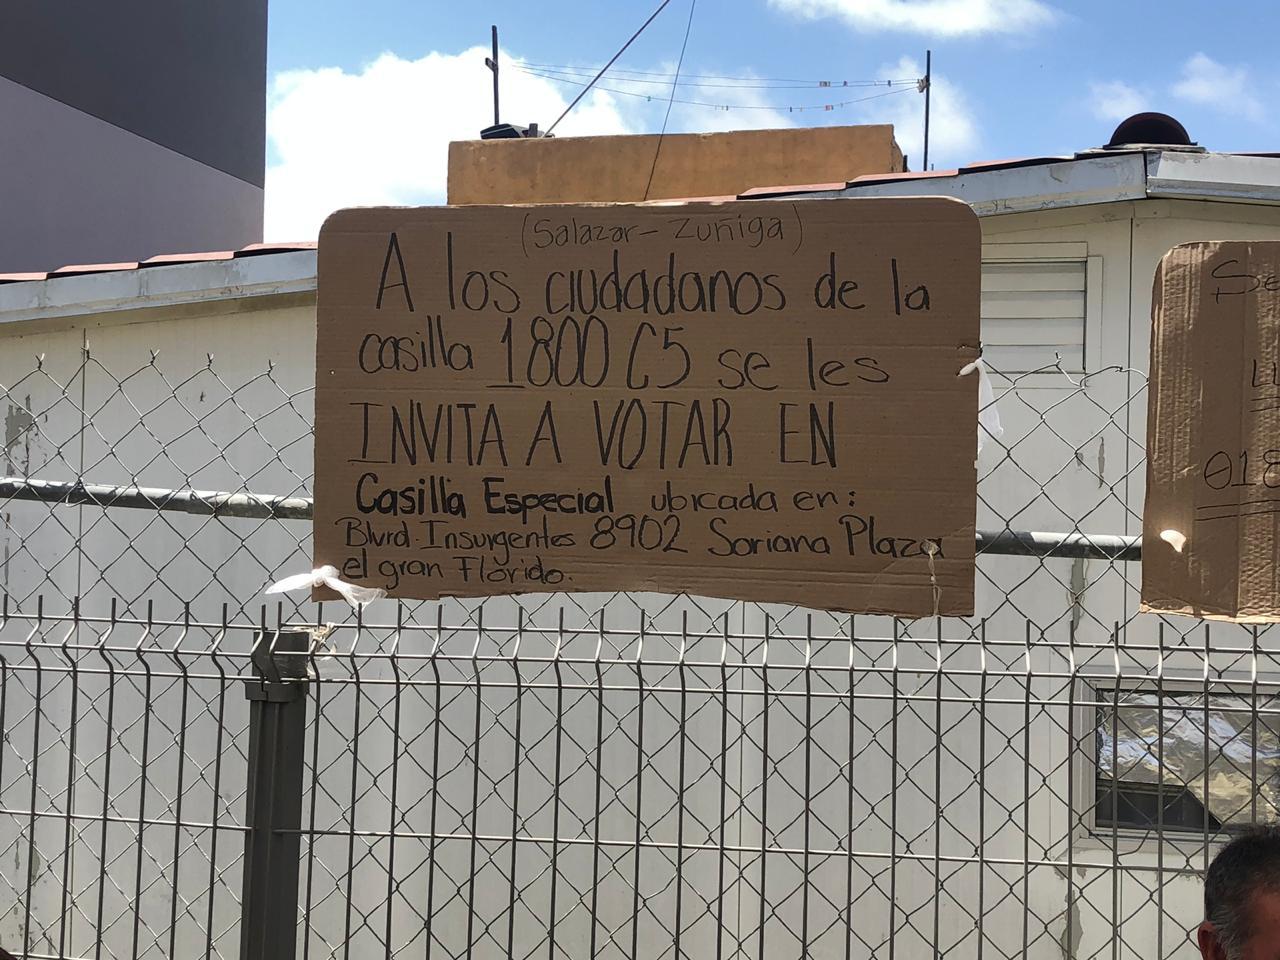 (Salazar- Zuñiga)
A los ciudadanos de la
casilla 1800 C5 se les
INVITA A VOTAR EN
Casilla Especial ubicada en:
Blvrd. Insurgentes 8902 Soriana Plaza
el gran Florido.
018